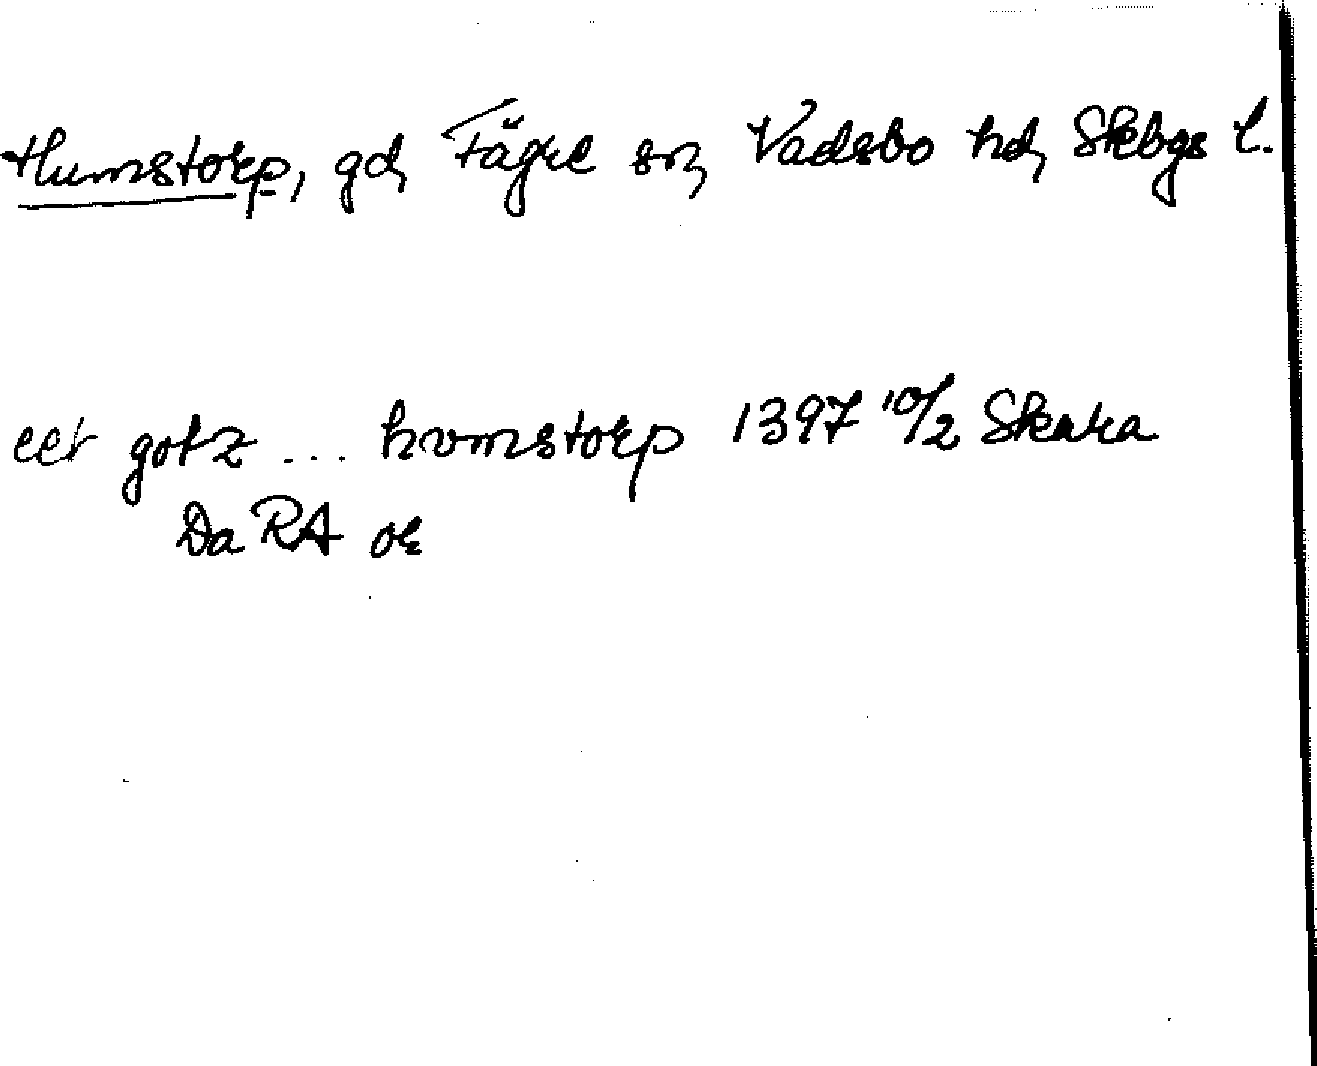 Humstorp, gd, Fägre sn, Vadsbo hd, Skbgs l.
eet gotz ... hvmstorp 1397 10/2 Skara
Da RA or